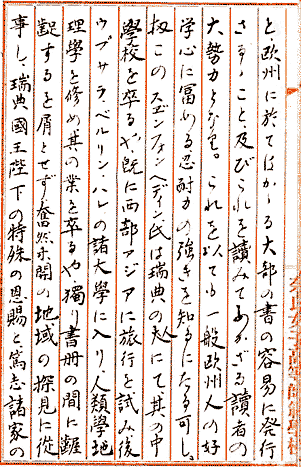 と、欧州に於てはかゝる大部の書の容易に発行
さするこ と及びこれを讀みてあかざる讀者の
大勢力となり。これを以ても一般欧州人の好
学心に富める忍耐力の強きを知るにたる可し。
扨このスヱンフォンヘディン氏は瑞典の人にて其の中
學校を卒るや、既に西部アジアに旅行を試み後
ウプサラ、ベルリン、ハレの諸大學に入り、人類學地
理學を修め其の業を卒るや獨り書册の間に齷
齪するを屑とせず、奮然未開の地域の探見に從
事し、瑞典國王陛下の特殊の恩賜と篤志諸家の